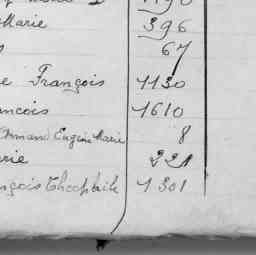 Marie 396
67
e François 1130
ancois 1610
Armand Eugène Marie 8
rie 221
nçois Théophile 1301